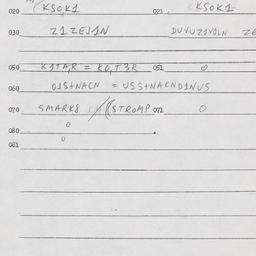 020 (KSO,K1 021 KSOK1
030 Z1ZEJ1N DUVUZ1V1LN ZE
050 K1TA,R = KO,T3R 051 0
060 O1S+NACN = USS+NACND1NUS
070 SMARK8 ((STROMP 071 0
0
080
0
081